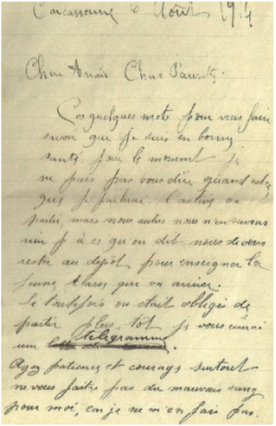 Carcassonne 6 Août 1914
Cher Anaïs Chers Parents
Ces quelques mots pour vous faire
savoir que je suis en bonne
santé pour le moment je
ne puis pas vous dire quand est
que je partirai l'active va
partir mais nous autres nous n'en savons
rien à ce qu'on dit nous devons
rester au dépôt pour enseigner la
jeune classe que va arriver.
Si toutefois on était obligés de
partir plus tôt je vous enverrai
une telegramme
Ayez patience et courage surtout
ne vous faites pas du mauvais sang
pour moi, car je ne m'en fais pas.